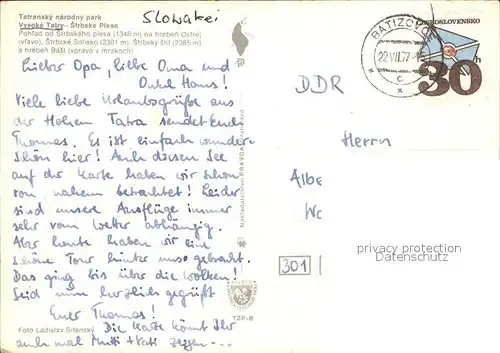 Tatranský národný park
Vysoké Tatry – Štrbské Pleso
Pohľad od Štrbského plesa (1346 m) na hrebeň Ostrej
(vľavo), Štrbské Solisko (2301 m), Štrbský štít (2385 m)
a hrebeň Bášt (vpravo v mrakoch)
Slowakei
Lieber Opa, liebe Oma und
Onkel Hans!
Viele liebe Urlaubsgrüße aus
der Hohen Tatra sendet Euch
Thomas. Es ist einfach wunder-
schön hier! Auch diesen See
auf der Karte haben wir schon
von nahem betrachtet! Leider
sind unsere Ausflüge immer
sehr vom Wetter abhängig.
Aber heute haben wir eine
schöne Tour hinter uns gebracht.
Das ging bis über die Wolken!
Seid nun herzlich gegrüßt
Euer Thomas!
Die Karte könnt Ihr
auch mal Mutti + Vati zeigen ---
Foto Ladislav Sitenský
Nakladateľstvo PRAVDA
TZP-B
BATIZOVCE
22.VII.77-15
c
ČESKOSLOVENSKO
30h
DDR
Herrn
Albe
Wc
301
privacy protection
Datenschutz